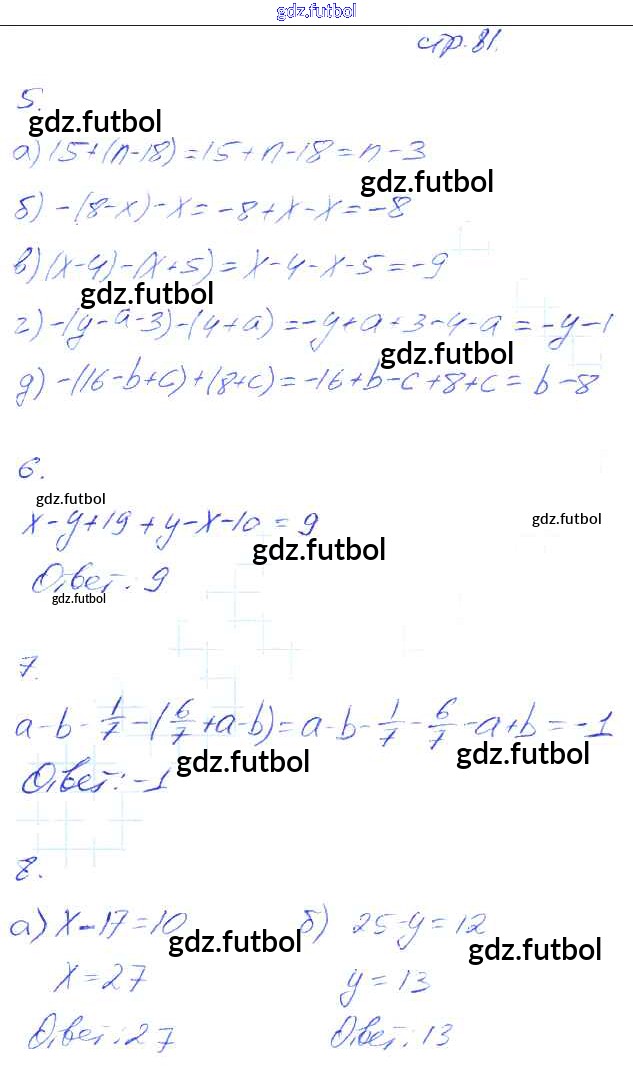 gdz.futbol
стр. 81.
5.
gdz.futbol
а) 15+(n-18)=15+n-18=n-3
gdz.futbol
б) -(8-x)-x=-8+x-x=-8
в) (x-4)-(x+5)=x-4-x-5=-9
gdz.futbol
г) -(y-a-3)-(4+a)=-y+a+3-4-a=-y-1
gdz.futbol
д) -(16-b+c)+(8+c)=-16+b-c+8+c=b-8
6.
gdz.futbol
x-y+19+y-x-10=9
gdz.futbol
gdz.futbol
Ответ: 9
gdz.futbol
7.
a-b-1/7-(6/7+a-b)=a-b-1/7-6/7-a+b=-1
gdz.futbol
gdz.futbol
Ответ: -1
8.
а) x-17=10 б) 25-y=12
gdz.futbol
gdz.futbol
x=27 y=13
Ответ: 27 Ответ: 13